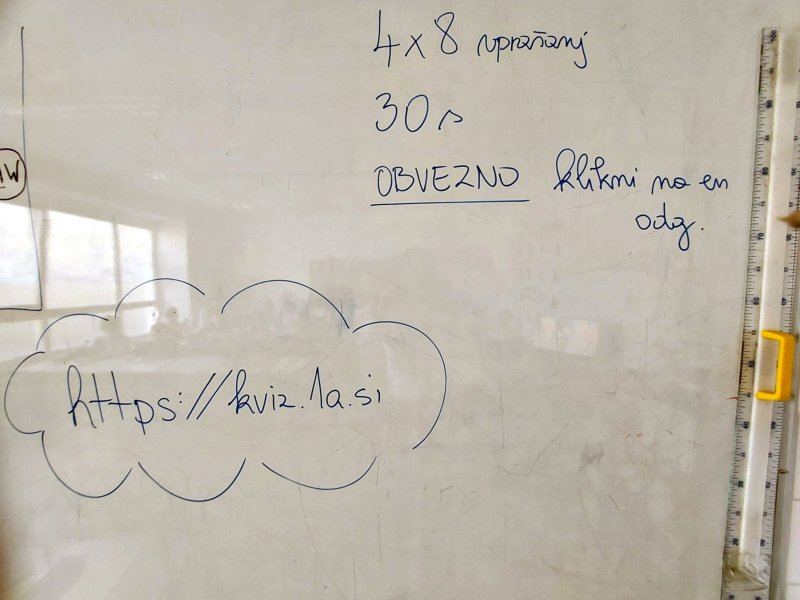 4 x 8 vprašanj
30 s
OBVEZNO klikni na en
odg.
https://kviz.1a.si